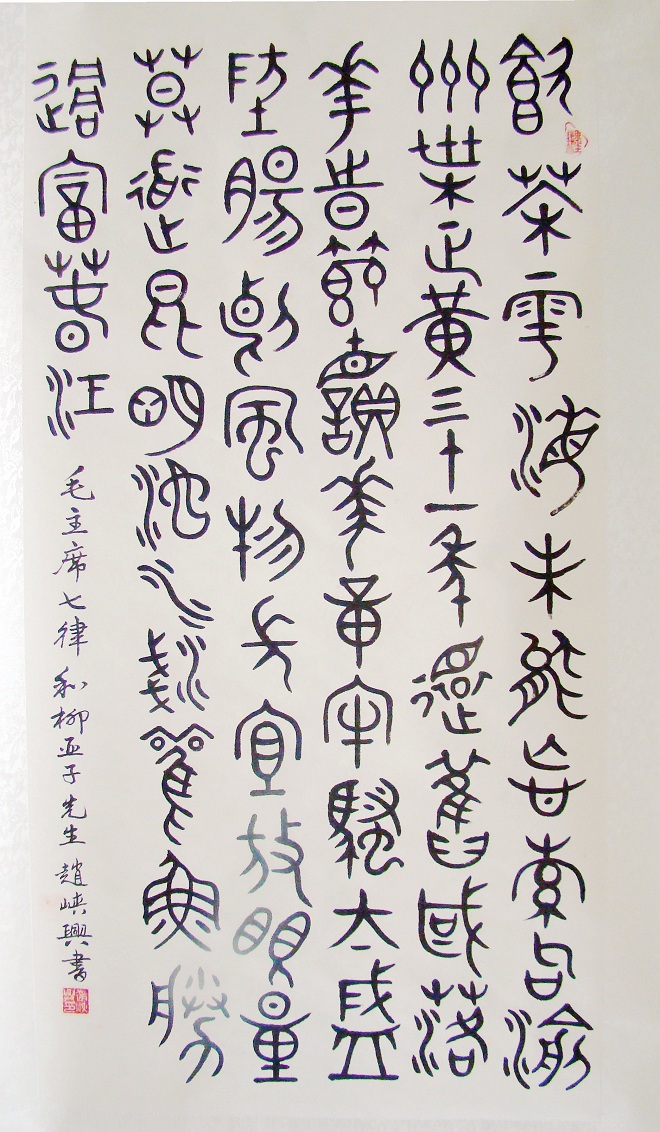 飲茶粵海未能忘索句渝
州葉正黃三十一年還舊國落
華時節讀華章牢騷太盛
防腸斷風物長宜放眼量
莫道昆明池水淺觀魚勝
過富春江
毛主席七律和柳亚子先生 趙峽興書